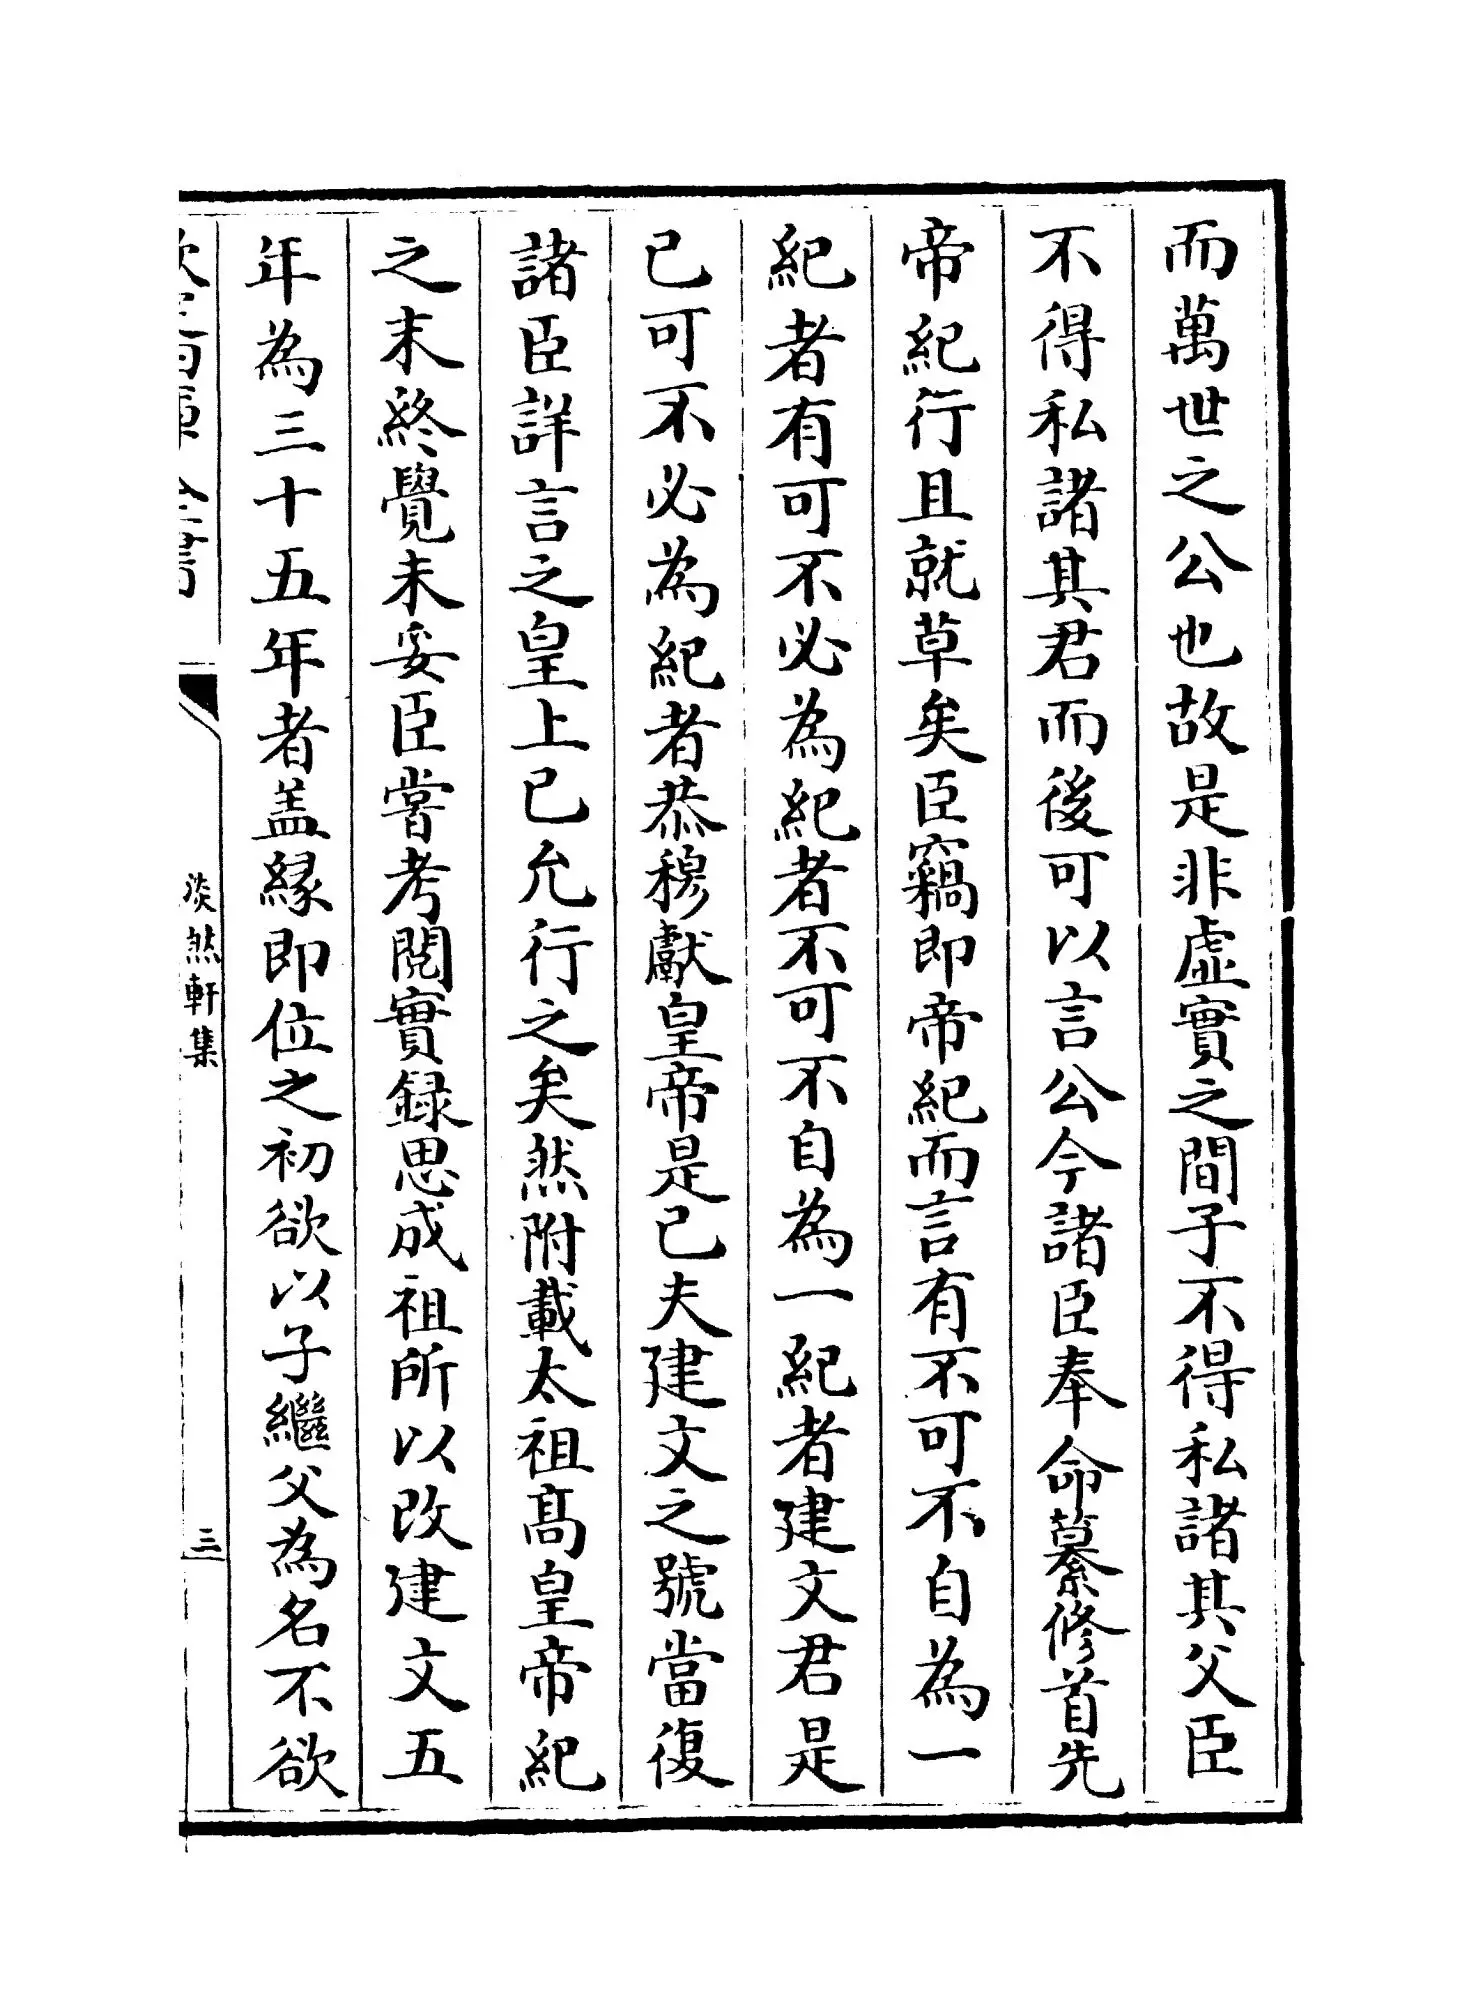 而萬世之公也故是非虛實之間子不得私諸其父臣
不得私諸其君而後可以言公今諸臣奉命纂修首先
帝紀行且就草矣臣竊即帝紀而言有不可不自為一
紀者有可不必為紀者不可不自為一紀者建文君是
已可不必為紀者恭穆獻皇帝是已夫建文之號當復
諸臣詳言之皇上已允行之矣然附載太祖高皇帝紀
之末終覺未妥臣嘗考閱實録思成祖所以改建文五
年為三十五年者盖緣即位之初欲以子繼父為名不欲
欽定四庫全書
淡然軒集
三